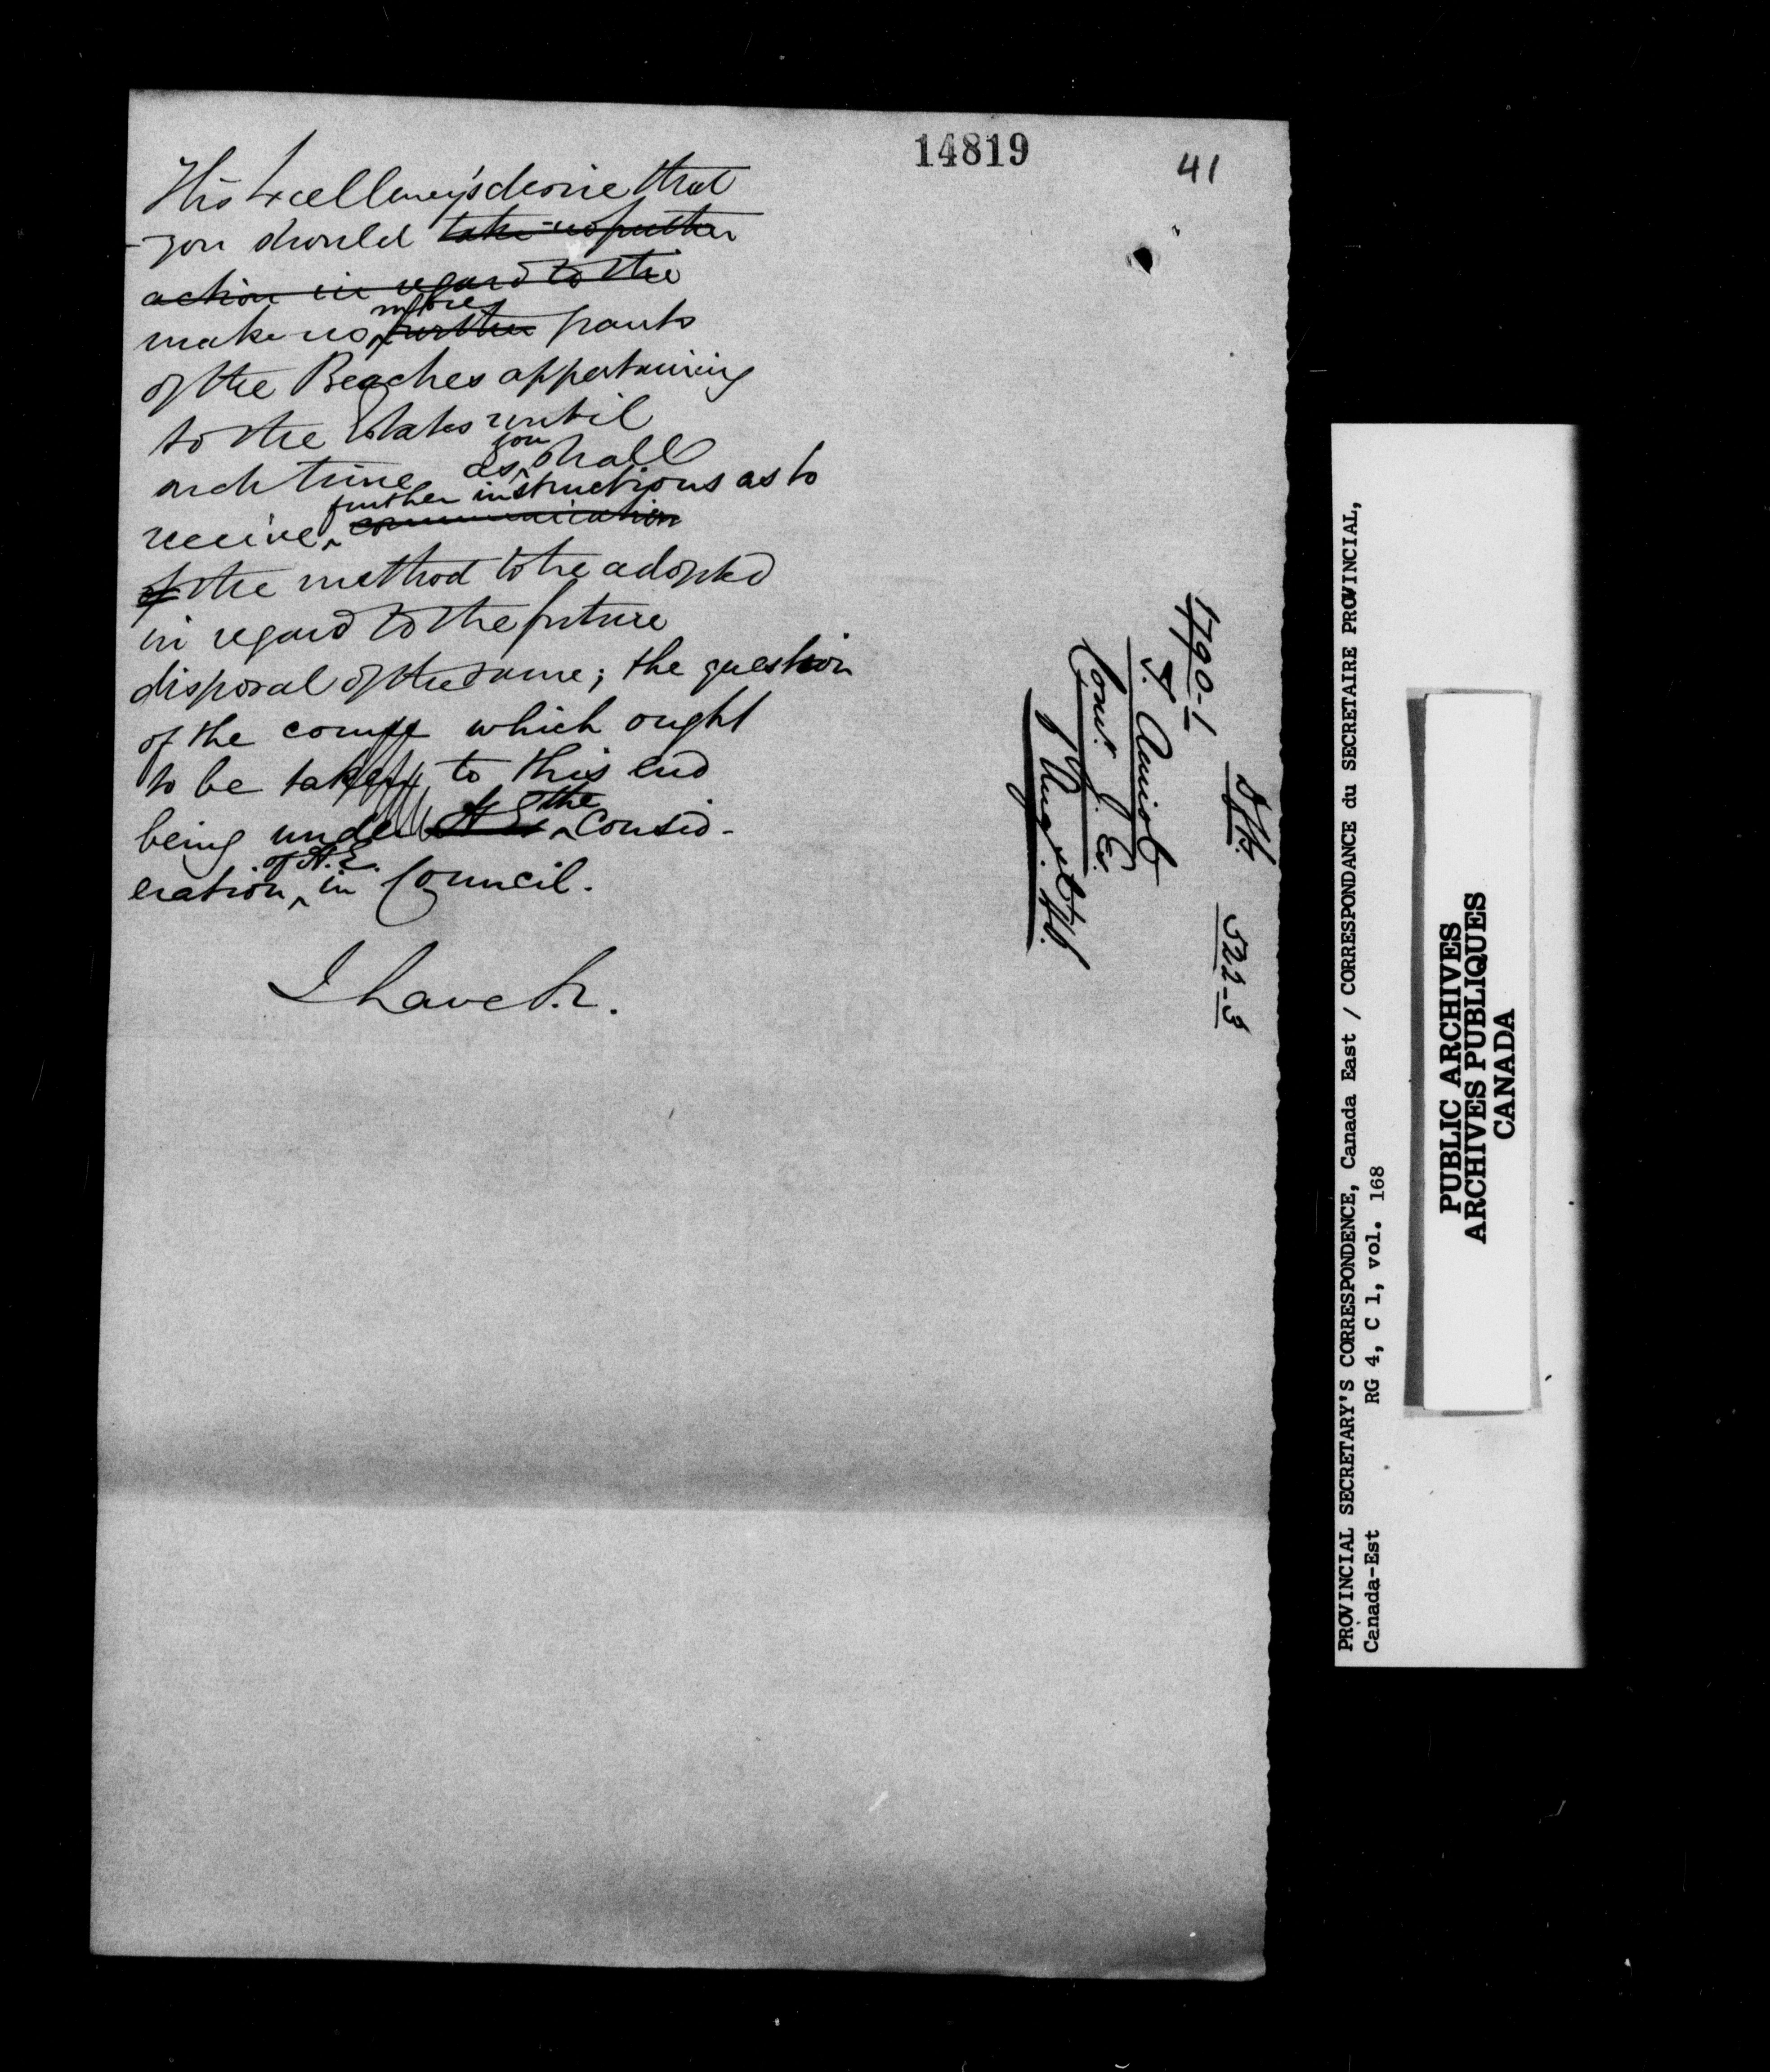 14819
41
His Excellency's desire that
you should take no further
action in regard to the
more
make no further grants
of the Beaches appertaining
to the Estates until
you
such time as shall
further instructions as to
receive communication
of the method to be adopted
in regard to the future
disposal of the same; the question
of the course which ought
to be taken to this end
the
being under H. E.'s consid-
of H.E.
eration in Council.
I have &c.
1790-1
F. Amiot
Com. J. Es.
Aug.
522-3
PROVINCIAL SECRETARY'S CORRESPONDENCE, Canada East / CORRESPONDANCE du SECRETAIRE PROVINCIAL,
Canada-Est RG 4, C 1, vol. 168
PUBLIC ARCHIVES
ARCHIVES PUBLIQUES
CANADA